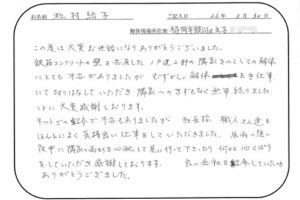 お名前 松村 絵子 ご記入日 26年 3月 30日
解体現場所在地 福岡市
この度は大変お世話になりありがとうございました。
鉄筋コンクリートの壁を共有した
隣家をのこしての解体
にとても不安がありましたが むずかしい解体 を手仕事
にて切りはなしていただき 隣家へのきずもなく無事終りました
ことに大変感謝しております。
ネットでの紹介で不安もありましたが 社長様、職人さん達も
ほんとによく気持良い仕事をしていただきました。 長雨の強い
夜中に隣家の雨もりを心配して見に行って下さったり 何かと心くばり
をしていただき感謝しております。 良い会社を紹介していただき
ありがとうございました。